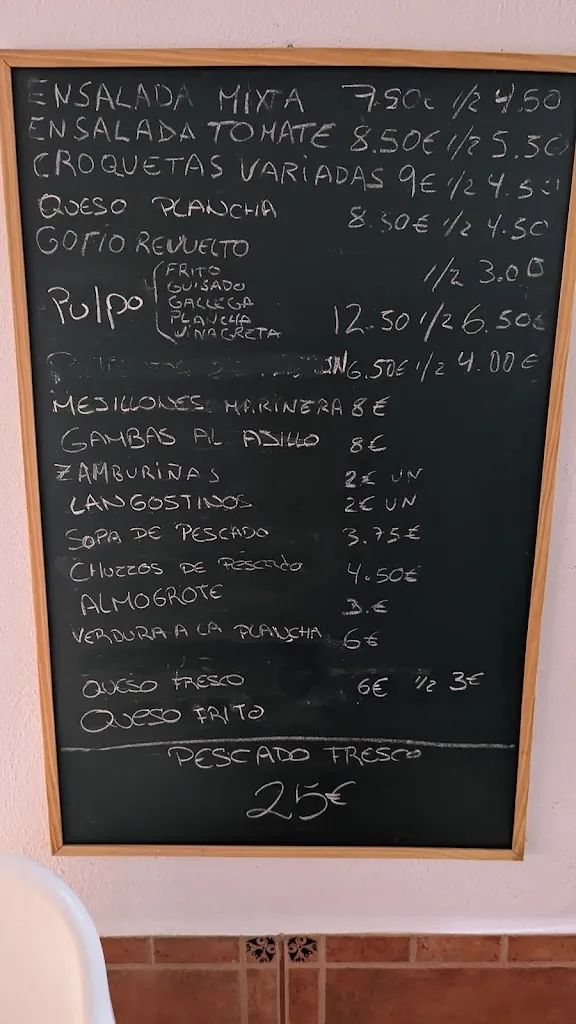 ENSALADA MIXTA 7.50€ 1/2 4.50
ENSALADA TOMATE 8.50€ 1/2 5.50
CROQUETAS VARIADAS 9€ 1/2 4.50
QUESO PLANCHA 8.50€ 1/2 4.50
GOFIO REVUELTO 1/2 3.00
Pulpo
FRITO
GUISADO
GALLEGA
PLANCHA
VINAGRETA
12.50 1/2 6.50€
6.50€ 1/2 4.00€
MEJILLONES MARINERA 8€
GAMBAS AL AJILLO 8€
ZAMBURIÑAS 2€ UN
LANGOSTINOS 2€ UN
SOPA DE PESCADO 3.75€
CHUZZOS DE PESCADO 4.50€
ALMOGROTE 3.€
VERDURA A LA PLANCHA 6€
QUESO FRESCO 6€ 1/2 3€
QUESO FRITO
PESCADO FRESCO
25€